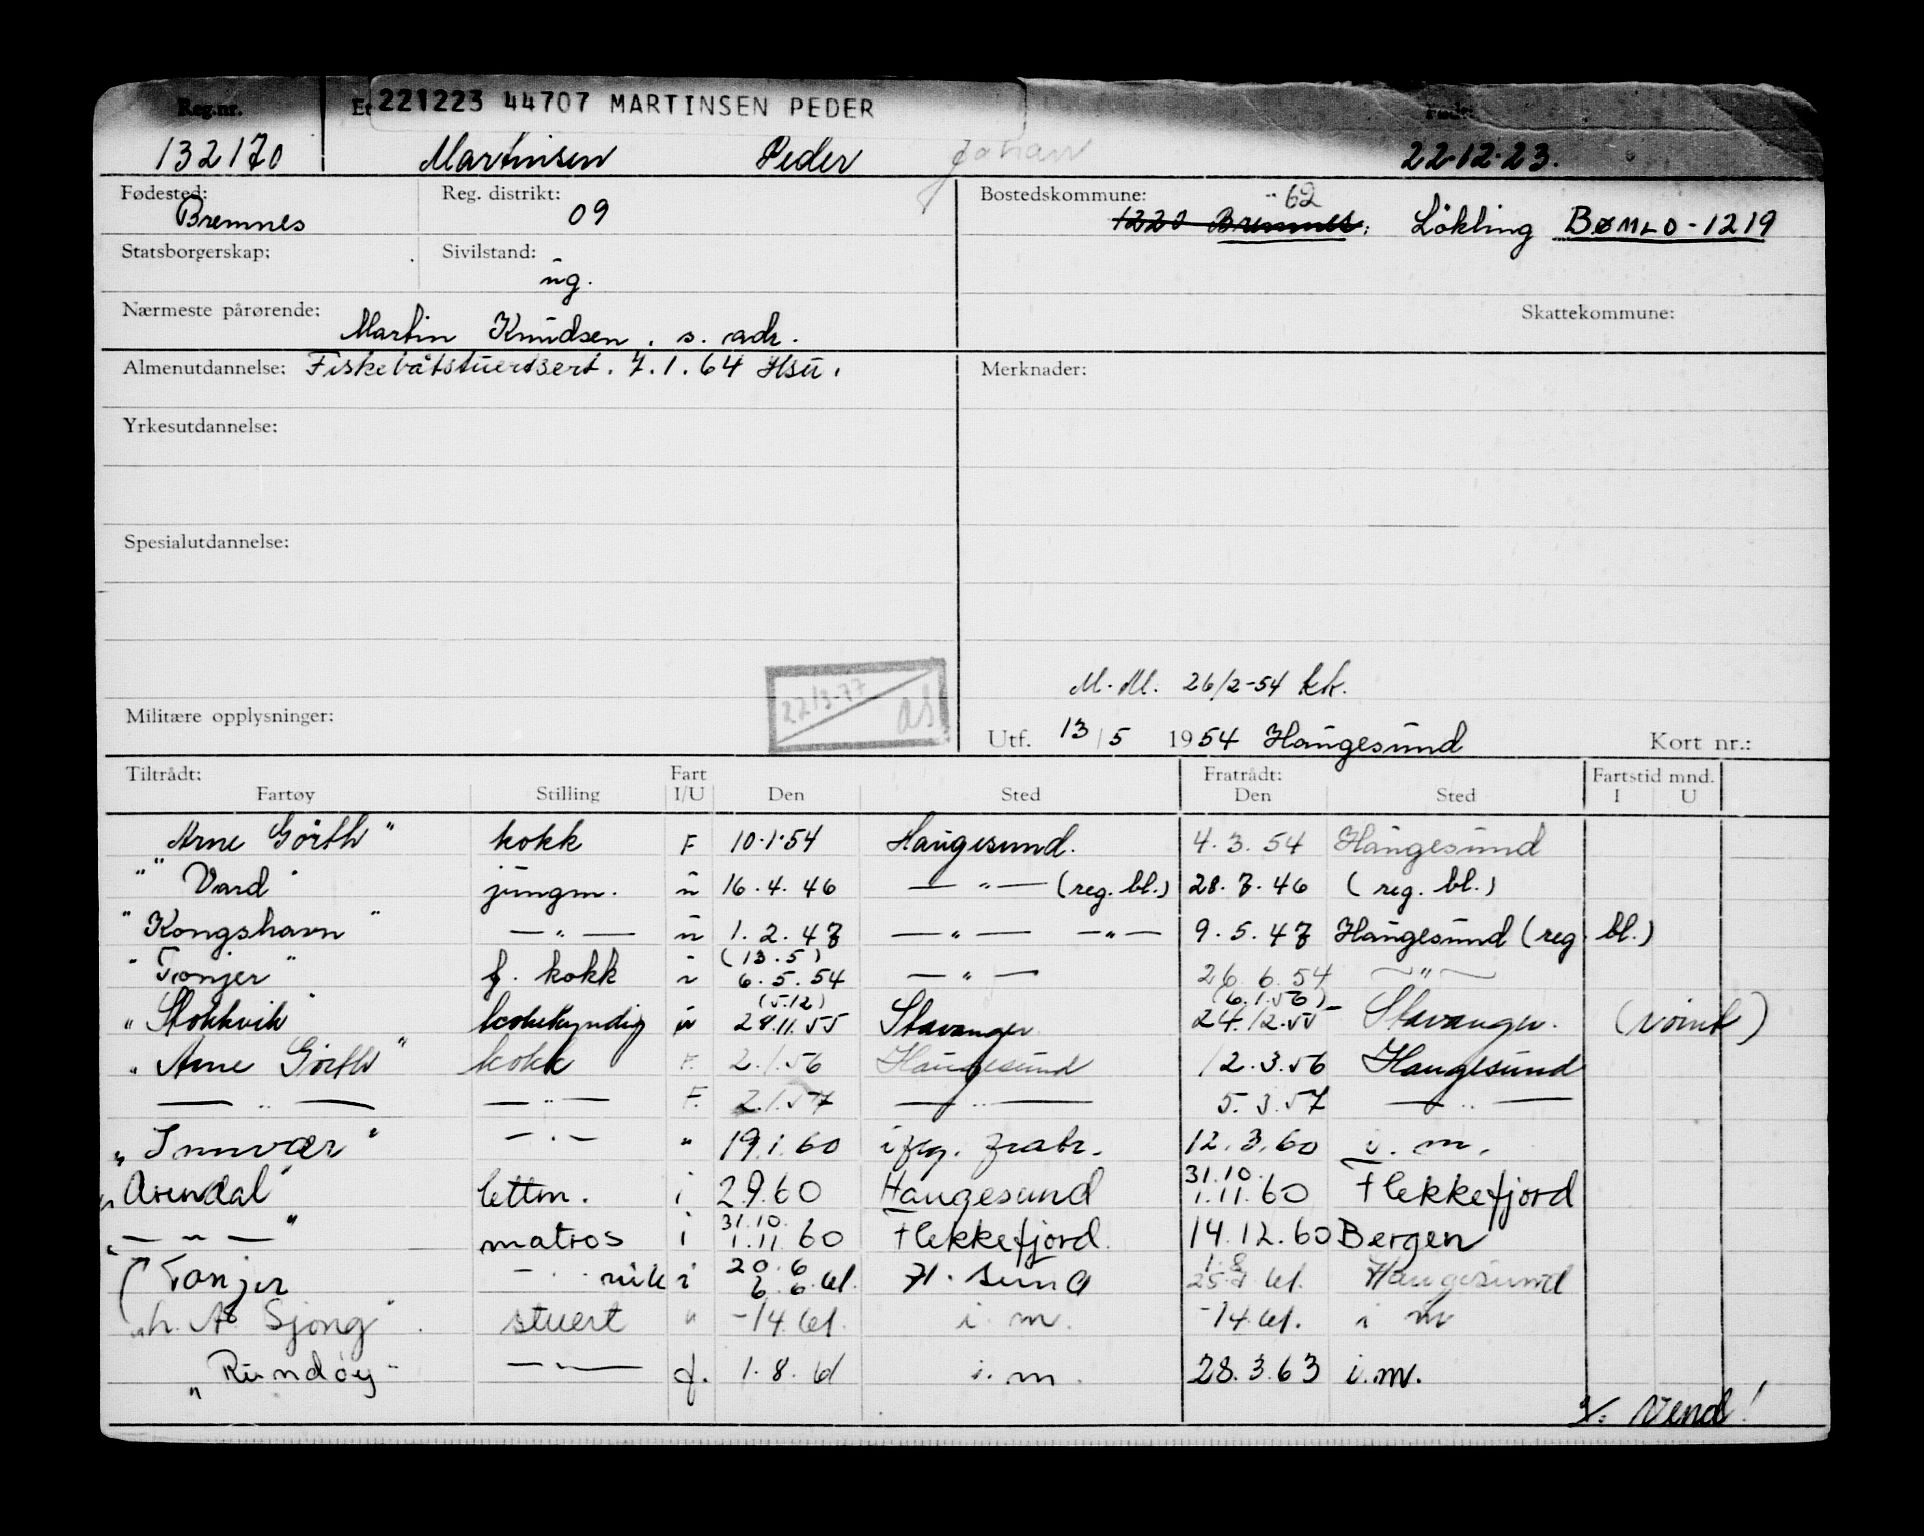 Reg.nr. Et 221223 44707 MARTINSEN PEDER Født:
132170 Martinsen Peder Johan 22.12.23.
Fødested: Bremnes Reg. distrikt: 09 Bostedskommune: 62
1220 Bremnes, Lökling BØMLO - 1219
Statsborgerskap: Sivilstand: ug.
Nærmeste pårørende: Skattekommune:
Martin Knudsen, s. adr.
Almenutdannelse: Fiskebåtstuertsert. 7.1.64 Hsu. Merknader:
Yrkesutdannelse:
Spesialutdannelse:
22/3-77 as
M.M. 26/2-54 kk.
Militære opplysninger: Utf. 13/5 1954 Haugesund Kort nr.:
Tiltrådt: Fart Fratrådt: Fartstid mnd.
Fartøy Stilling I/U Den Sted Den Sted I U
Arne Görth" kokk F 10.1.54 Haugesund. 4.3.54 Haugesund
" Vard" jungm. u 16.4.46 — " — (reg. bl.) 28.7.46 (reg. bl.)
"Kongshavn" — " — u 1.2.47 — " — — " — 9.5.47 Haugesund (reg. bl.)
"Tonjer" f. kokk i (13.5) 6.5.54 — " — 26.6.54 — " —
"Stokkvik" kokekyndig (5.12) 28.11.55 Stavanger (6.1.56) 24.12.55 Stavanger.
"Arne Görth" kokk F. 2.1.56 Haugesund 12.3.56 Haugesund
— " — — " — F. 2.1.57 — " — 5.3.57 — " —
"Innvær" — " — " 19.1.60 12.3.60 i.m.
"Arendal" lettm. i 2.9.60 Haugesund 31.10. 1.11.60 Flekkefjord
" — " — " matros i 31.10. 1.11.60 Flekkefjord. 14.12.60 Bergen
Tonjer — " — i 20.6 6.6.61. H.sund 1.8 25.7.61. Haugesund
Sjong" stuert " -14.61. i.m. -14.61. i m
"Rundöy" — " — f. 1.8.61 i.m. 28.3.63 i.m.
Vend!